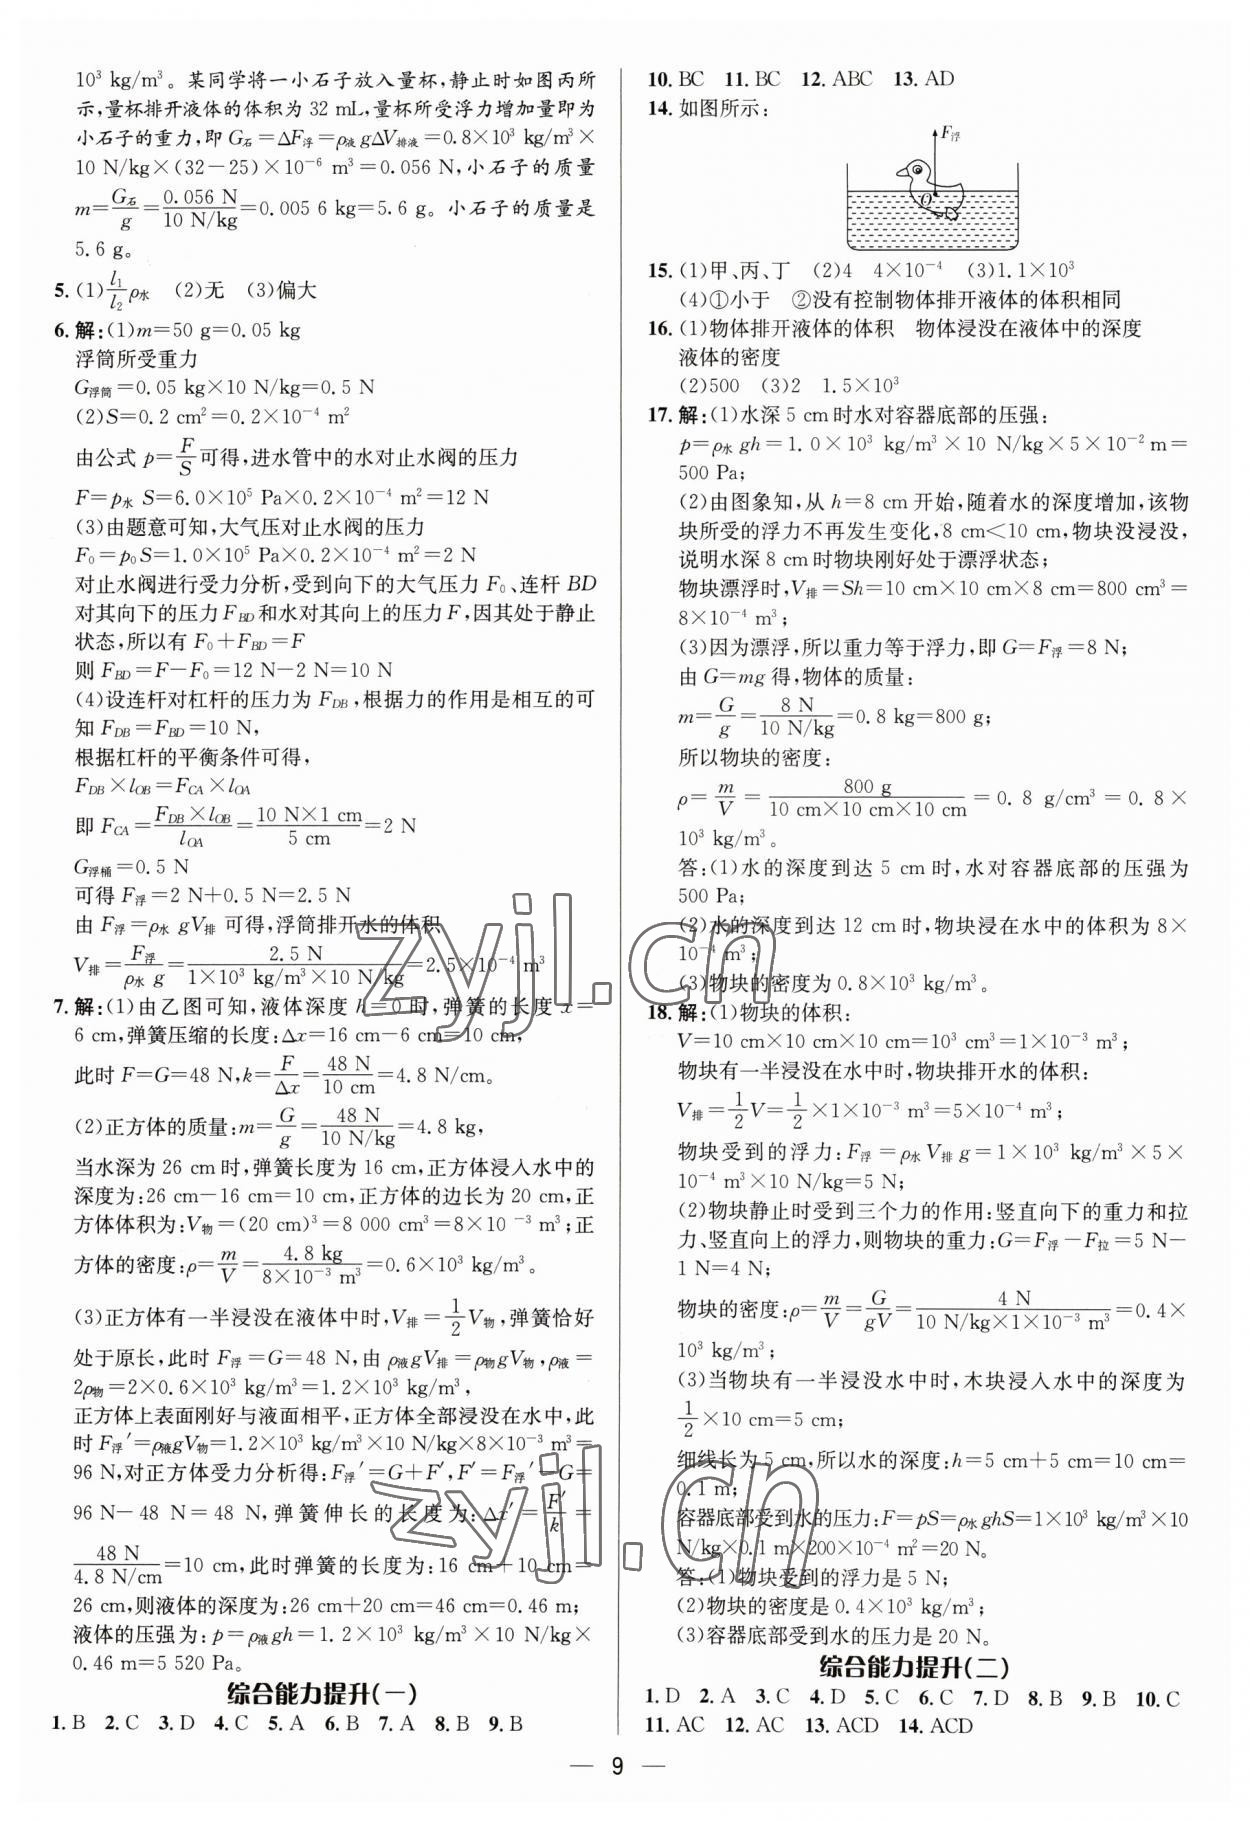 10³ kg/m³。某同学将一小石子放入量杯,静止时如图丙所
示,量杯排开液体的体积为 32 mL,量杯所受浮力增加量即为
小石子的重力,即 G石=ΔF浮=ρ液 gΔV排液=0.8×10³ kg/m³×
10 N/kg×(32-25)×10⁻⁶ m³=0.056 N,小石子的质量
m=G石/g=0.056 N/10 N/kg=0.005 6 kg=5.6 g。小石子的质量是
5.6 g。
5. (1)l₁/l₂ρ水 (2)无 (3)偏大
6. 解:(1)m=50 g=0.05 kg
浮筒所受重力
G浮筒=0.05 kg×10 N/kg=0.5 N
(2)S=0.2 cm²=0.2×10⁻⁴ m²
由公式 p=F/S可得,进水管中的水对止水阀的压力
F=p水 S=6.0×10⁵ Pa×0.2×10⁻⁴ m²=12 N
(3)由题意可知,大气压对止水阀的压力
F₀=p₀S=1.0×10⁵ Pa×0.2×10⁻⁴ m²=2 N
对止水阀进行受力分析,受到向下的大气压力 F₀、连杆 BD
对其向下的压力 F_BD 和水对其向上的压力 F,因其处于静止
状态,所以有 F₀+F_BD=F
则 F_BD=F-F₀=12 N-2 N=10 N
(4)设连杆对杠杆的压力为 F_DB,根据力的作用是相互的可
知 F_DB=F_BD=10 N,
根据杠杆的平衡条件可得,
F_DB×l_OB=F_CA×l_OA
即 F_CA=F_DB×l_OB/l_OA=10 N×1 cm/5 cm=2 N
G浮桶=0.5 N
可得 F浮=2 N+0.5 N=2.5 N
由 F浮=ρ水 gV排 可得,浮筒排开水的体积
V排=F浮/ρ水 g=2.5 N/1×10³ kg/m³×10 N/kg=2.5×10⁻⁴ m³
7. 解:(1)由乙图可知,液体深度 h=0 时,弹簧的长度 x=
6 cm,弹簧压缩的长度:Δx=16 cm-6 cm=10 cm,
此时 F=G=48 N,k=F/Δx=48 N/10 cm=4.8 N/cm。
(2)正方体的质量:m=G/g=48 N/10 N/kg=4.8 kg,
当水深为 26 cm 时,弹簧长度为 16 cm,正方体浸入水中的
深度为:26 cm-16 cm=10 cm,正方体的边长为 20 cm,正
方体体积为:V物=(20 cm)³=8 000 cm³=8×10⁻³ m³;正
方体的密度:ρ=m/V=4.8 kg/8×10⁻³ m³=0.6×10³ kg/m³。
(3)正方体有一半浸没在液体中时,V排=1/2V物,弹簧恰好
处于原长,此时 F浮=G=48 N,由 ρ液gV排=ρ物gV物,ρ液=
2ρ物=2×0.6×10³ kg/m³=1.2×10³ kg/m³,
正方体上表面刚好与液面相平,正方体全部浸没在水中,此
时 F浮′=ρ液gV物=1.2×10³ kg/m³×10 N/kg×8×10⁻³ m³=
96 N,对正方体受力分析得:F浮′=G+F′,F′=F浮′-G=
96 N-48 N=48 N,弹簧伸长的长度为:Δx′=F′/k=
48 N/4.8 N/cm=10 cm,此时弹簧的长度为:16 cm+10 cm=
26 cm,则液体的深度为:26 cm+20 cm=46 cm=0.46 m;
液体的压强为:p=ρ液gh=1.2×10³ kg/m³×10 N/kg×
0.46 m=5 520 Pa。
综合能力提升(一)
1. B 2. C 3. D 4. C 5. A 6. B 7. A 8. B 9. B
10. BC 11. BC 12. ABC 13. AD
14. 如图所示:
F浮
O
15. (1)甲、丙、丁 (2)4 4×10⁻⁴ (3)1.1×10³
(4)①小于 ②没有控制物体排开液体的体积相同
16. (1)物体排开液体的体积 物体浸没在液体中的深度
液体的密度
(2)500 (3)2 1.5×10³
17. 解:(1)水深 5 cm 时水对容器底部的压强:
p=ρ水 gh=1.0×10³ kg/m³×10 N/kg×5×10⁻² m=
500 Pa;
(2)由图象知,从 h=8 cm 开始,随着水的深度增加,该物
块所受的浮力不再发生变化,8 cm<10 cm,物块没浸没,
说明水深 8 cm 时物块刚好处于漂浮状态;
物块漂浮时,V排=Sh=10 cm×10 cm×8 cm=800 cm³=
8×10⁻⁴ m³;
(3)因为漂浮,所以重力等于浮力,即 G=F浮=8 N;
由 G=mg 得,物体的质量:
m=G/g=8 N/10 N/kg=0.8 kg=800 g;
所以物块的密度:
ρ=m/V=800 g/10 cm×10 cm×10 cm=0.8 g/cm³=0.8×
10³ kg/m³。
答:(1)水的深度到达 5 cm 时,水对容器底部的压强为
500 Pa;
(2)水的深度到达 12 cm 时,物块浸在水中的体积为 8×
10⁻⁴ m³;
(3)物块的密度为 0.8×10³ kg/m³。
18. 解:(1)物块的体积:
V=10 cm×10 cm×10 cm=10³ cm³=1×10⁻³ m³;
物块有一半浸没在水中时,物块排开水的体积:
V排=1/2V=1/2×1×10⁻³ m³=5×10⁻⁴ m³;
物块受到的浮力:F浮=ρ水V排g=1×10³ kg/m³×5×
10⁻⁴ m³×10 N/kg=5 N;
(2)物块静止时受到三个力的作用:竖直向下的重力和拉
力、竖直向上的浮力,则物块的重力:G=F浮-F拉=5 N-
1 N=4 N;
物块的密度:ρ=m/V=G/gV=4 N/10 N/kg×1×10⁻³ m³=0.4×
10³ kg/m³;
(3)当物块有一半浸没水中时,木块浸入水中的深度为
1/2×10 cm=5 cm;
细线长为 5 cm,所以水的深度:h=5 cm+5 cm=10 cm=
0.1 m;
容器底部受到水的压力:F=pS=ρ水ghS=1×10³ kg/m³×10
N/kg×0.1 m×200×10⁻⁴ m²=20 N。
答:(1)物块受到的浮力是 5 N;
(2)物块的密度是 0.4×10³ kg/m³;
(3)容器底部受到水的压力是 20 N。
综合能力提升(二)
1. D 2. A 3. C 4. D 5. C 6. C 7. D 8. B 9. B 10. C
11. AC 12. AC 13. ACD 14. ACD
— 9 —
zyjl.cn
zyjl.cn